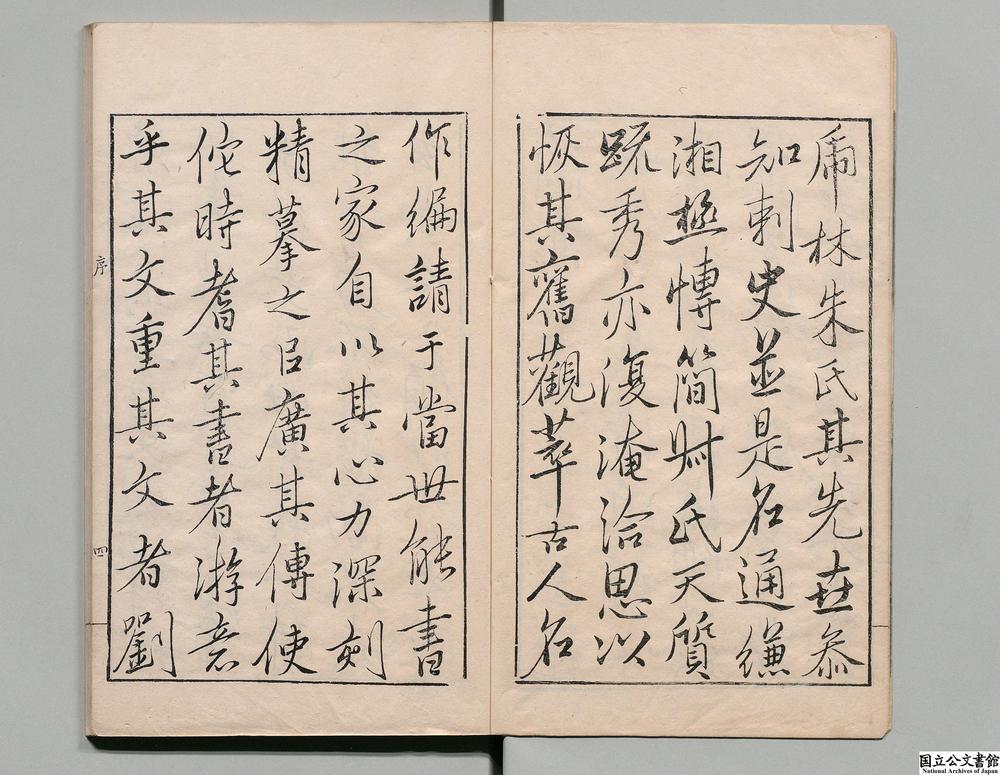 虎林朱氏其先世忝
知刺史並是名通縑
湘極博簡財氏天質
跣秀亦復淹洽思以
恢其舊觀萃古人名
作編請于當世能書
之家自以其心力深刻
精摹之以廣其傳使
佗時耆其書者游意
乎其文重其文者劉
序
四
国立公文書館
National Archives of Japan